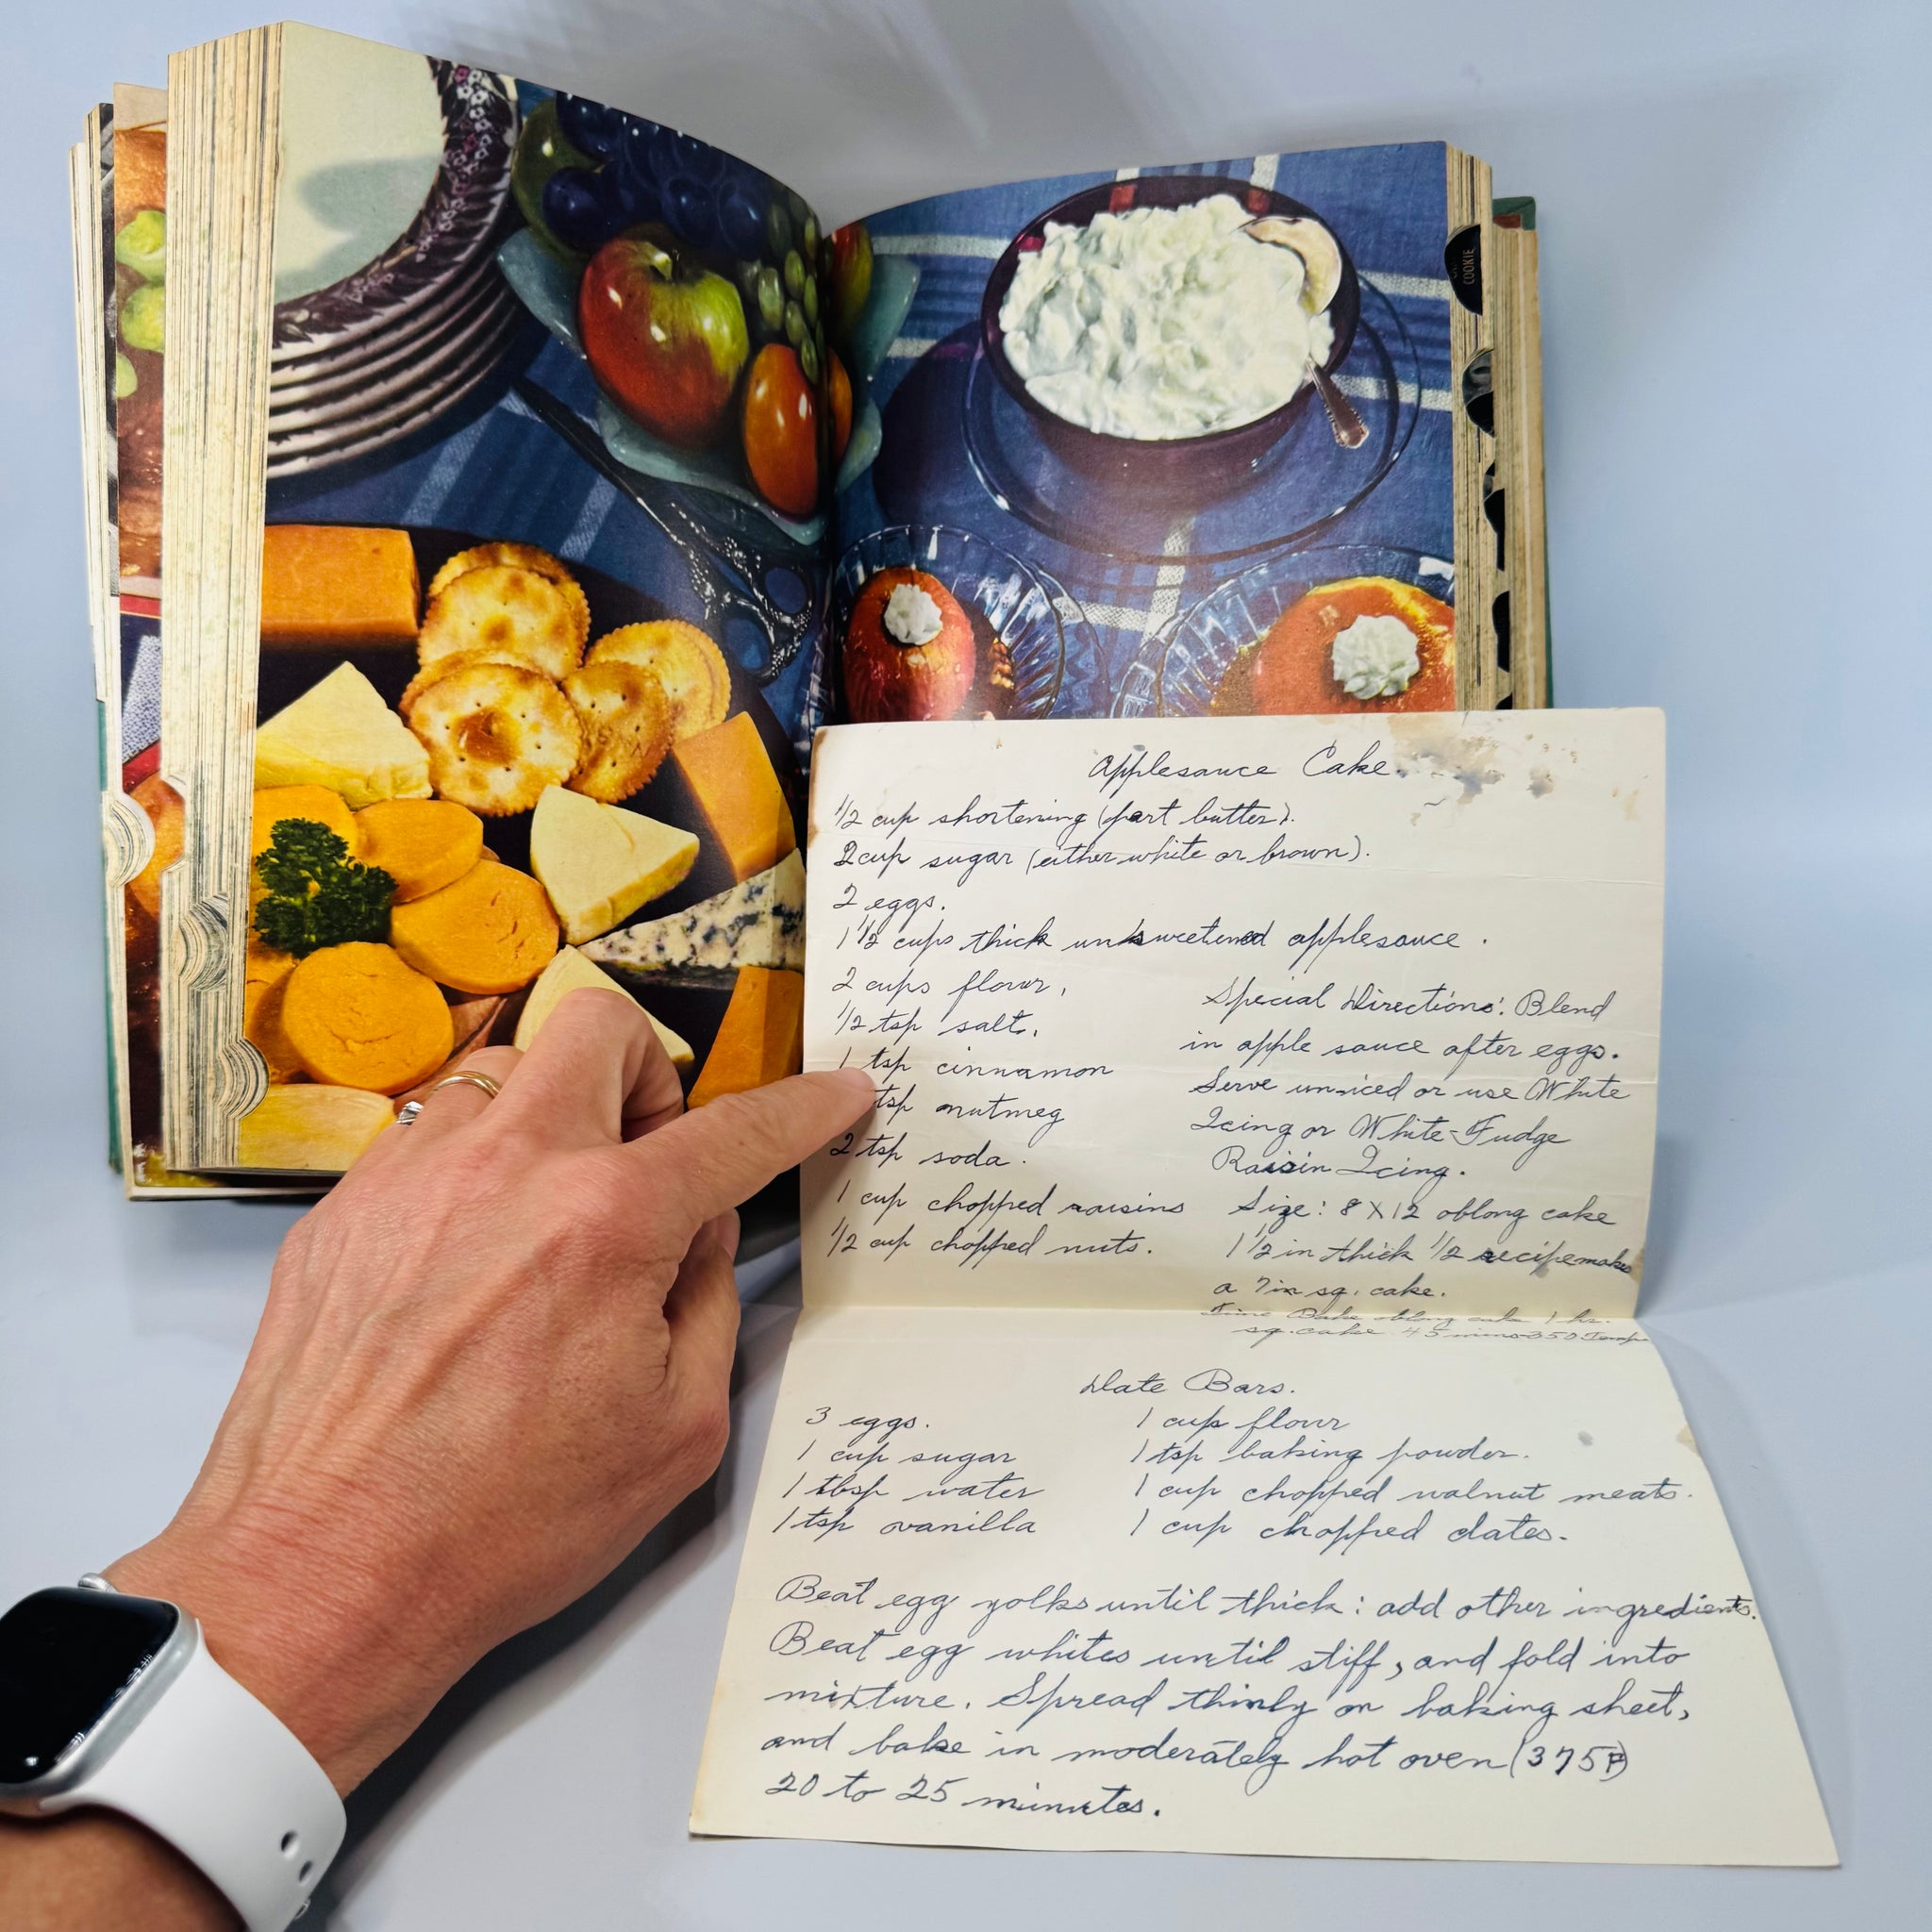 COOKIE
Applesauce Cake.
1/2 cup shortening (part butter).
2 cup sugar (either white or brown).
2 eggs.
1 1/2 cups thick unsweetened applesauce.
2 cups flour,
1/2 tsp salt.
1 tsp cinnamon
tsp nutmeg
2 tsp soda.
1 cup chopped raisins
1/2 cup chopped nuts.
Special Directions: Blend
in apple sauce after eggs.
Serve uniced or use White
Icing or White-Fudge
Raisin Icing.
Size: 8 X 12 oblong cake
1 1/2 in thick 1/2 recipe makes
a 7 in sq. cake.
Time Bake oblong cake 1 hr.
sq. cake 45 mins 350 Temp
Date Bars.
3 eggs.
1 cup sugar
1 tbsp water
1 tsp vanilla
1 cup flour
1 tsp baking powder.
1 cup chopped walnut meats.
1 cup chopped dates.
Beat egg yolks until thick: add other ingredients.
Beat egg whites until stiff, and fold into
mixture. Spread thinly on baking sheet,
and bake in moderately hot oven (375F)
20 to 25 minutes.